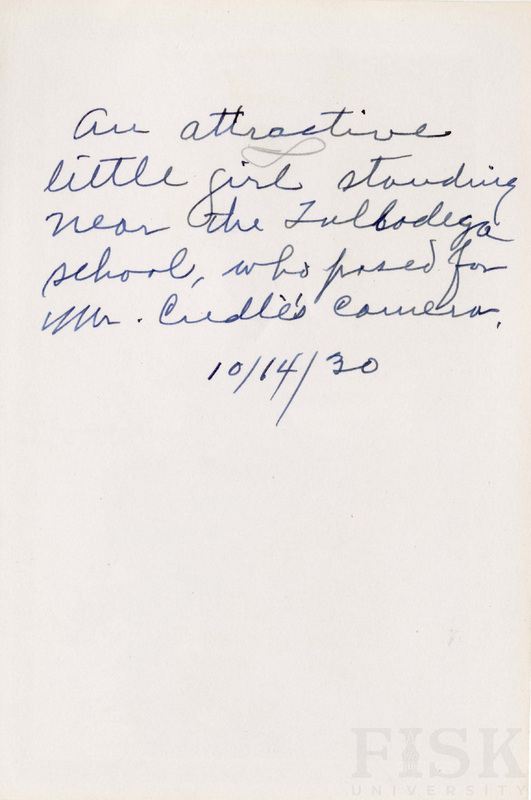 An attractive
little girl standing
near the Tulbodega
school, who posed for
Mr. Credle's camera.
10/14/30
FISK
UNIVERSITY